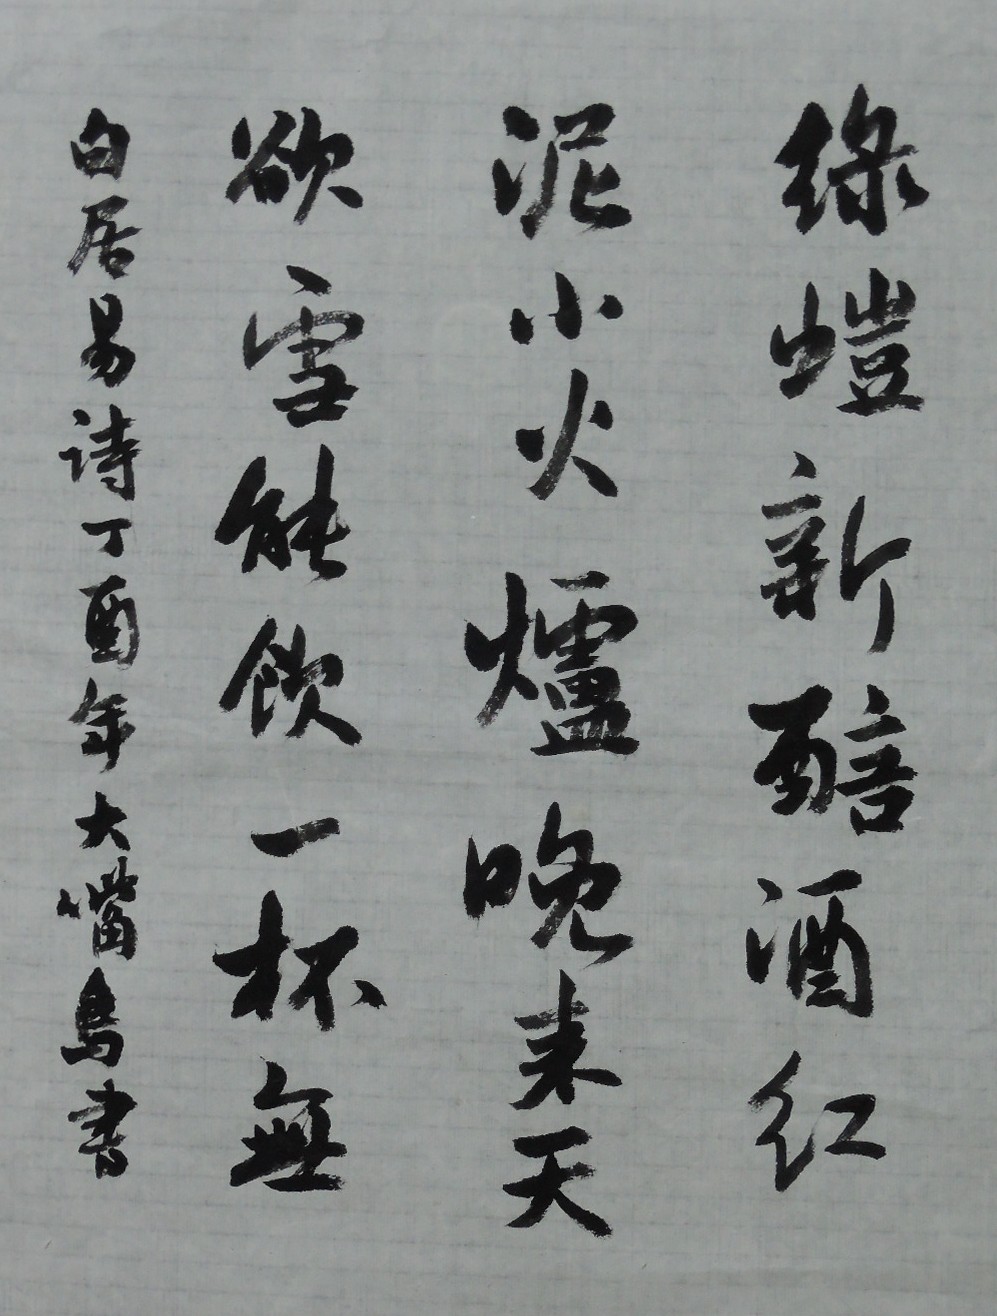 綠螘新醅酒紅
泥小火爐晚来天
欲雪能飲一杯無
白居易詩丁酉年大嘴鳥書